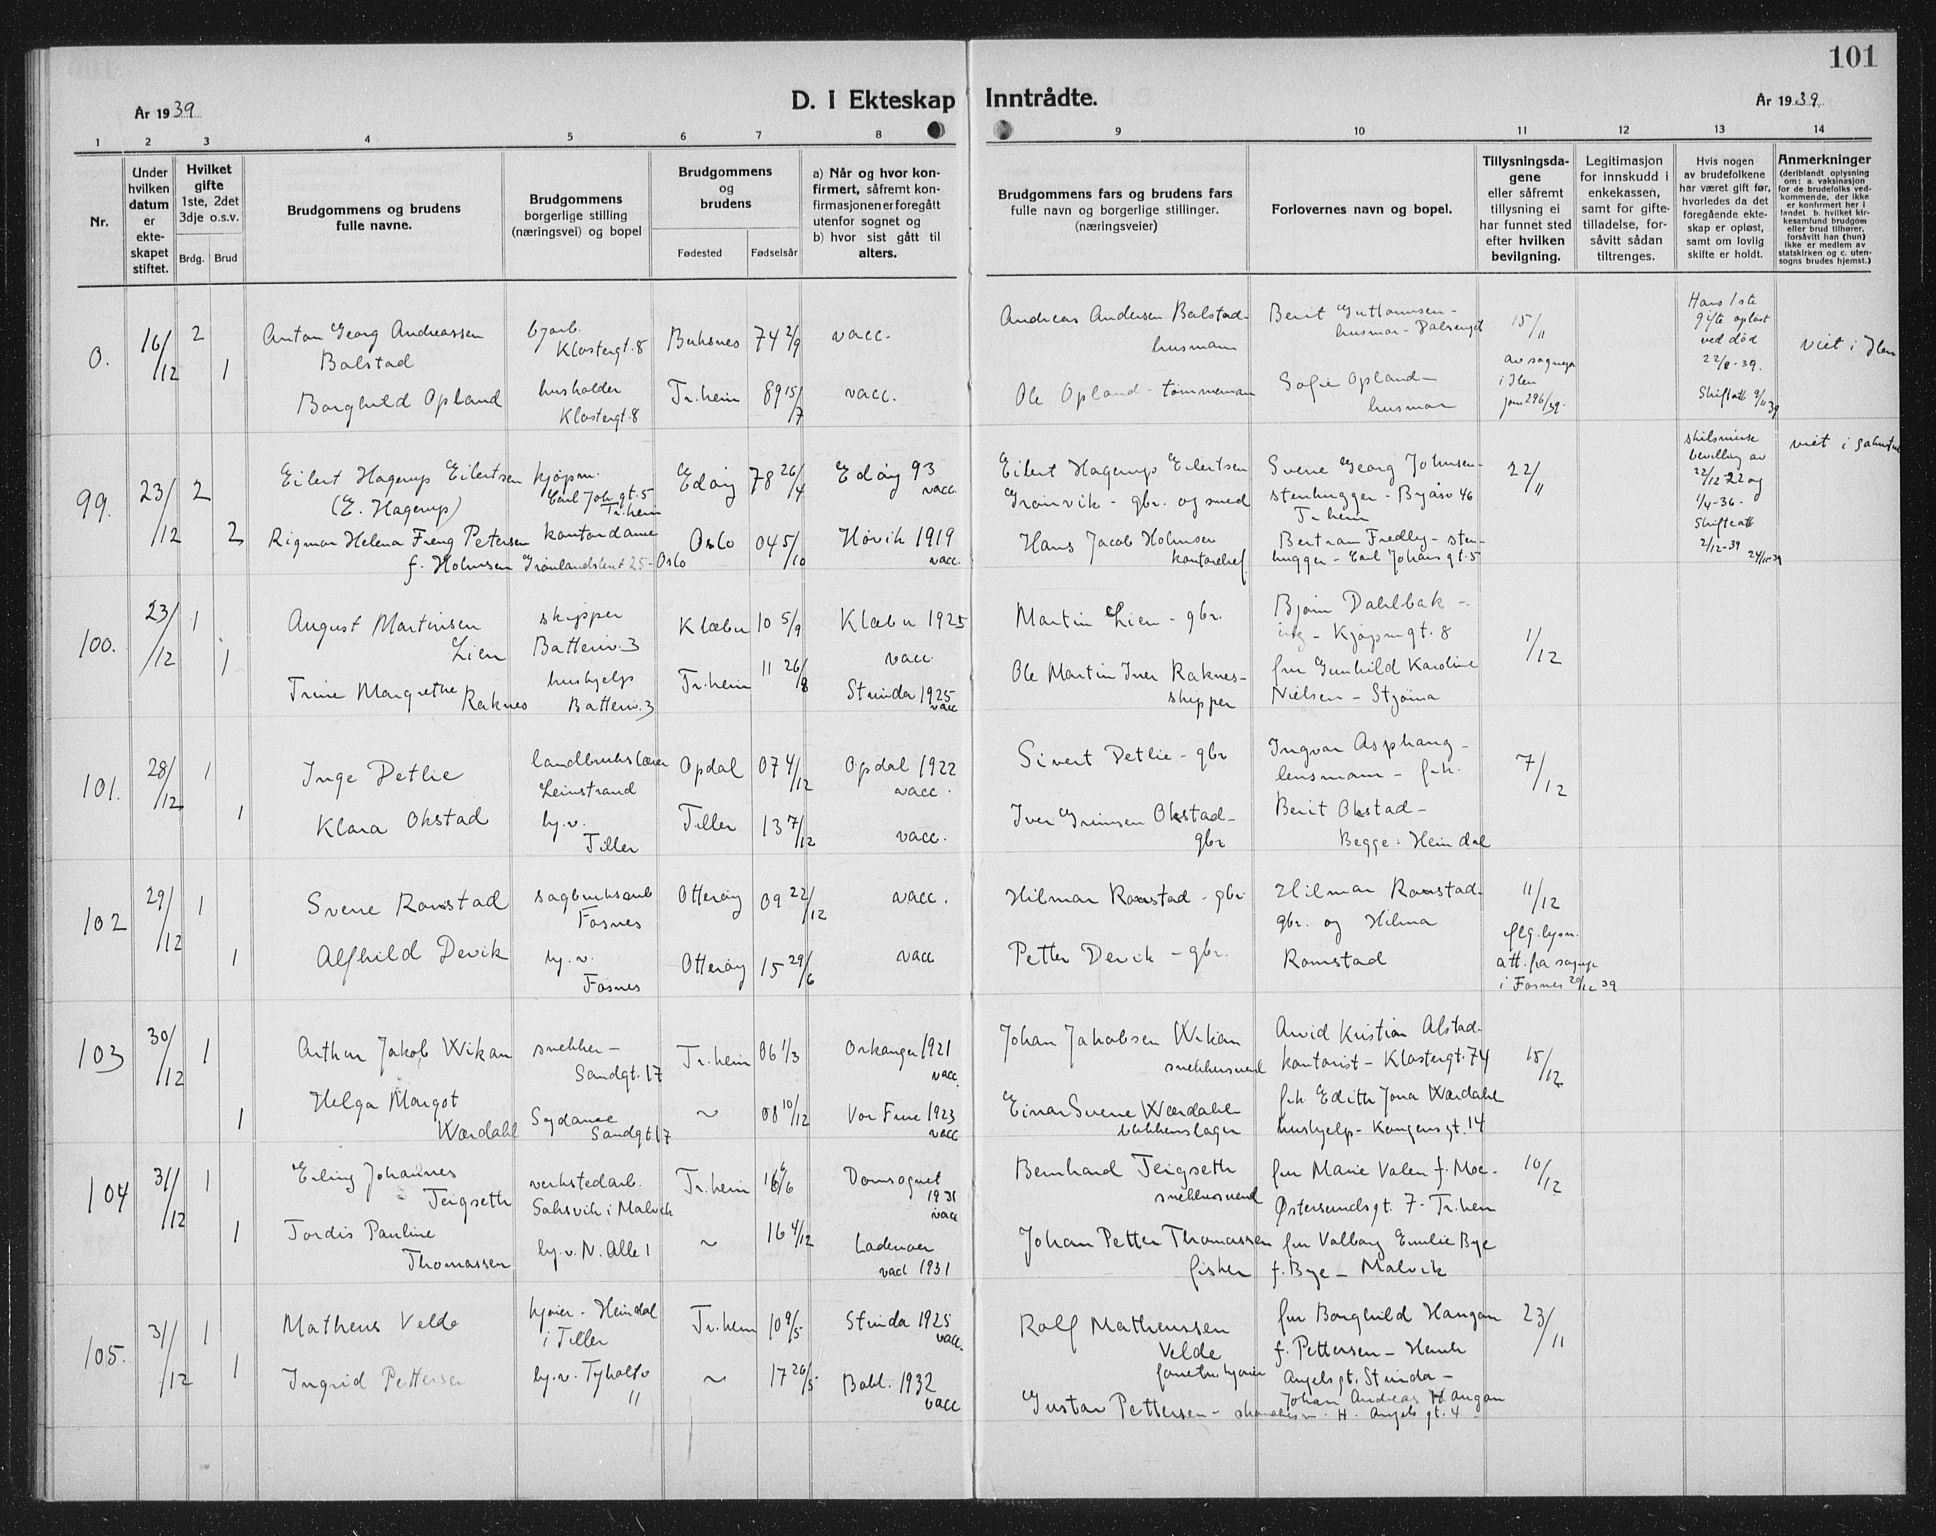 101
År 1939
D. I Ekteskap Inntrådte.
År 1939
1 2 3 4 5 6 7 8 9 10 11 12 13 14
Nr.
Under hvilken datum er ekteskapet stiftet.
Hvilket gifte 1ste, 2det 3dje o.s.v.
Brdg. Brud
Brudgommens og brudens fulle navne.
Brudgommens borgerlige stilling (næringsvei) og bopel
Brudgommens og brudens
Fødested Fødselsår
a) Når og hvor konfirmert, såfremt konfirmasjonen er foregått utenfor sognet og b) hvor sist gått til alters.
Brudgommens fars og brudens fars fulle navn og borgerlige stillinger. (næringsveier)
Forlovernes navn og bopel.
Tillysningsdagene eller såfremt tillysning ei har funnet sted efter hvilken bevilgning.
Legitimasjon for innskudd i enkekassen, samt for giftetilladelse, forsåvitt sådan tiltrenges.
Hvis nogen av brudefolkene har været gift før, hvorledes da det föregående ekteskap er opløst, samt om lovlig skifte er holdt.
Anmerkninger (deriblandt oplysning om: a. vaksinasjon for de brudefolks vedkommende, der ikke er konfirmert her i landet. b. hvilket kirkesamfund brudgom eller brud tilhører, forsåvitt han (hun) ikke er medlem av statskirken og c. utensogns brudes hjemst.)
0. 16/12 2 Anton Georg Andreassen
Balstad
Klostergt. 8
Buksnes 74 2/9 vacc.
Andreas Andersen Balstad
husmann
Berit Guttormsen-
husmor - Dalsenget
15/11
Hans 1ste
gifte opløst
ved død
22/8-39.
Skifteatt 9/11 39
viet i Ilen
1 Borghild Opland
husholder
Klostergt. 8
Tr.heim 89 15/7 vacc.
Ole Opland - tømmerman
Sofie Opland-
husmor
i Ilen
99. 23/12 2 Eilert Hagerup Eilertsen
(E. Hagerup)
kjøpm.
Carl Joh. gt. 5
Tr.heim
Edøy 78 26/4 Edøy 93
vacc.
Eilert Hagerup Eilertsen
Grønvik - gbr. og smed
Sverre Georg Johnsen-
stenhugger - Byåsv 46
Tr.heim
22/11
skilsmisse
bevilling av
22/12-22 og
1/4-36-
Skifteatt
2/12-39
24/11-39
2 Rigmor Helena Freng Petersen
f. Holmsen
kontordame
Grønlandsleiret 25 - Oslo
Oslo 04 5/10 Høvik 1919
vacc.
Hans Jacob Holmsen
kontorchef.
Bertram Fredly - stenhugger - Carl Johans gt. 5
100. 23/12 1 August Martinsen
Lien
skipper
Batteriv. 3
Klæbu 10 5/9 Klæbu 1925
vacc.
Martin Lien - gbr.
Bjørn Dahlbak -
Kjøpmgt. 8
1/12
1 Trine Margrethe
Raknes
hushjelp
Batteriv. 3
Tr.heim 11 26/8 Strinda 1925
vacc
Ole Martin Iver Raknes-
skipper
fru Gunhild Karoline
Nielsen - Stjørna
101. 28/12 1 Inge Detlie
landbrukslærer
Leinstrand
Opdal 07 4/12 Opdal 1922
vacc.
Sivert Detlie - gbr
Ingvar Asphaug -
lensmann - frk.
7/12
1 Klara Okstad
hj.v.
Tiller
Tiller 13 7/12 vacc.
Iver Grimsen Okstad-
gbr
Berit Okstad-
Begge: Heimdal
102 29/12 1 Sverre Ramstad
sagbruksarb
Fosnes
Otterøy 09 22/12 vacc.
Hilmar Ramstad - gbr
Hilmar Ramstad-
gbr. og Hilma
Ramstad
11/12
flg. lysn.
att. fra sognepr
i Fosnes 20/12 39
1 Alfhild Devik
hj.v.
Fosnes
Otterøy 15 29/6 vacc
Petter Devik - gbr.
103 30/12 1 Arthur Jakob Wikan
snekker -
Sandgt. 17
Tr.heim 06 1/3 Orkanger 1921
vacc.
Johan Jakobsen Wikan
snekkersvend
Arvid Kristian Alstad-
kontorist - Klostergt. 74
15/12
1 Helga Margot
Wærdahl
Sydame
Sandgt. 17
~ 08 10/12 Vor Frue 1923
vacc
Einar Sverre Wærdahl
blikkenslager
frk Edith Jona Wærdahl
hushjelp - Kongensgt. 14
104 31/12 1 Erling Johannes
Teigseth
verkstedarb.
Saksvik i Malvik
Tr.heim 16 6/6 Domsognet
1931
vacc
Bernhard Teigseth
snekkersvend
fru Marie Valen f. Moe-
Østersundsgt. 7 - Tr.heim
10/12
1 Tordis Pauline
Thomassen
hj.v. N. Alle 1
~ 16 4/12 Lademoen
vacc 1931
Johan Petter Thomassen
fisker
fru Valborg Emilie Bye
f. Bye - Malvik
105. 31/12 1 Matheus Velde
kjører - Heimdal
i Tiller
Tr.heim 10 9/5 Strinda 1925
vacc.
Rolf Matheussen
Velde
fru Borghild Haugan
f. Pettersen - Henrik
Angelsgt. Strinda -
23/11
1 Ingrid Pettersen
hj.v. Tyholtv
11
~ 17 26/5 Bakl. 1932
vacc
Gustav Pettersen -
Johan Andreas Haugan
H. Angels gt. 4